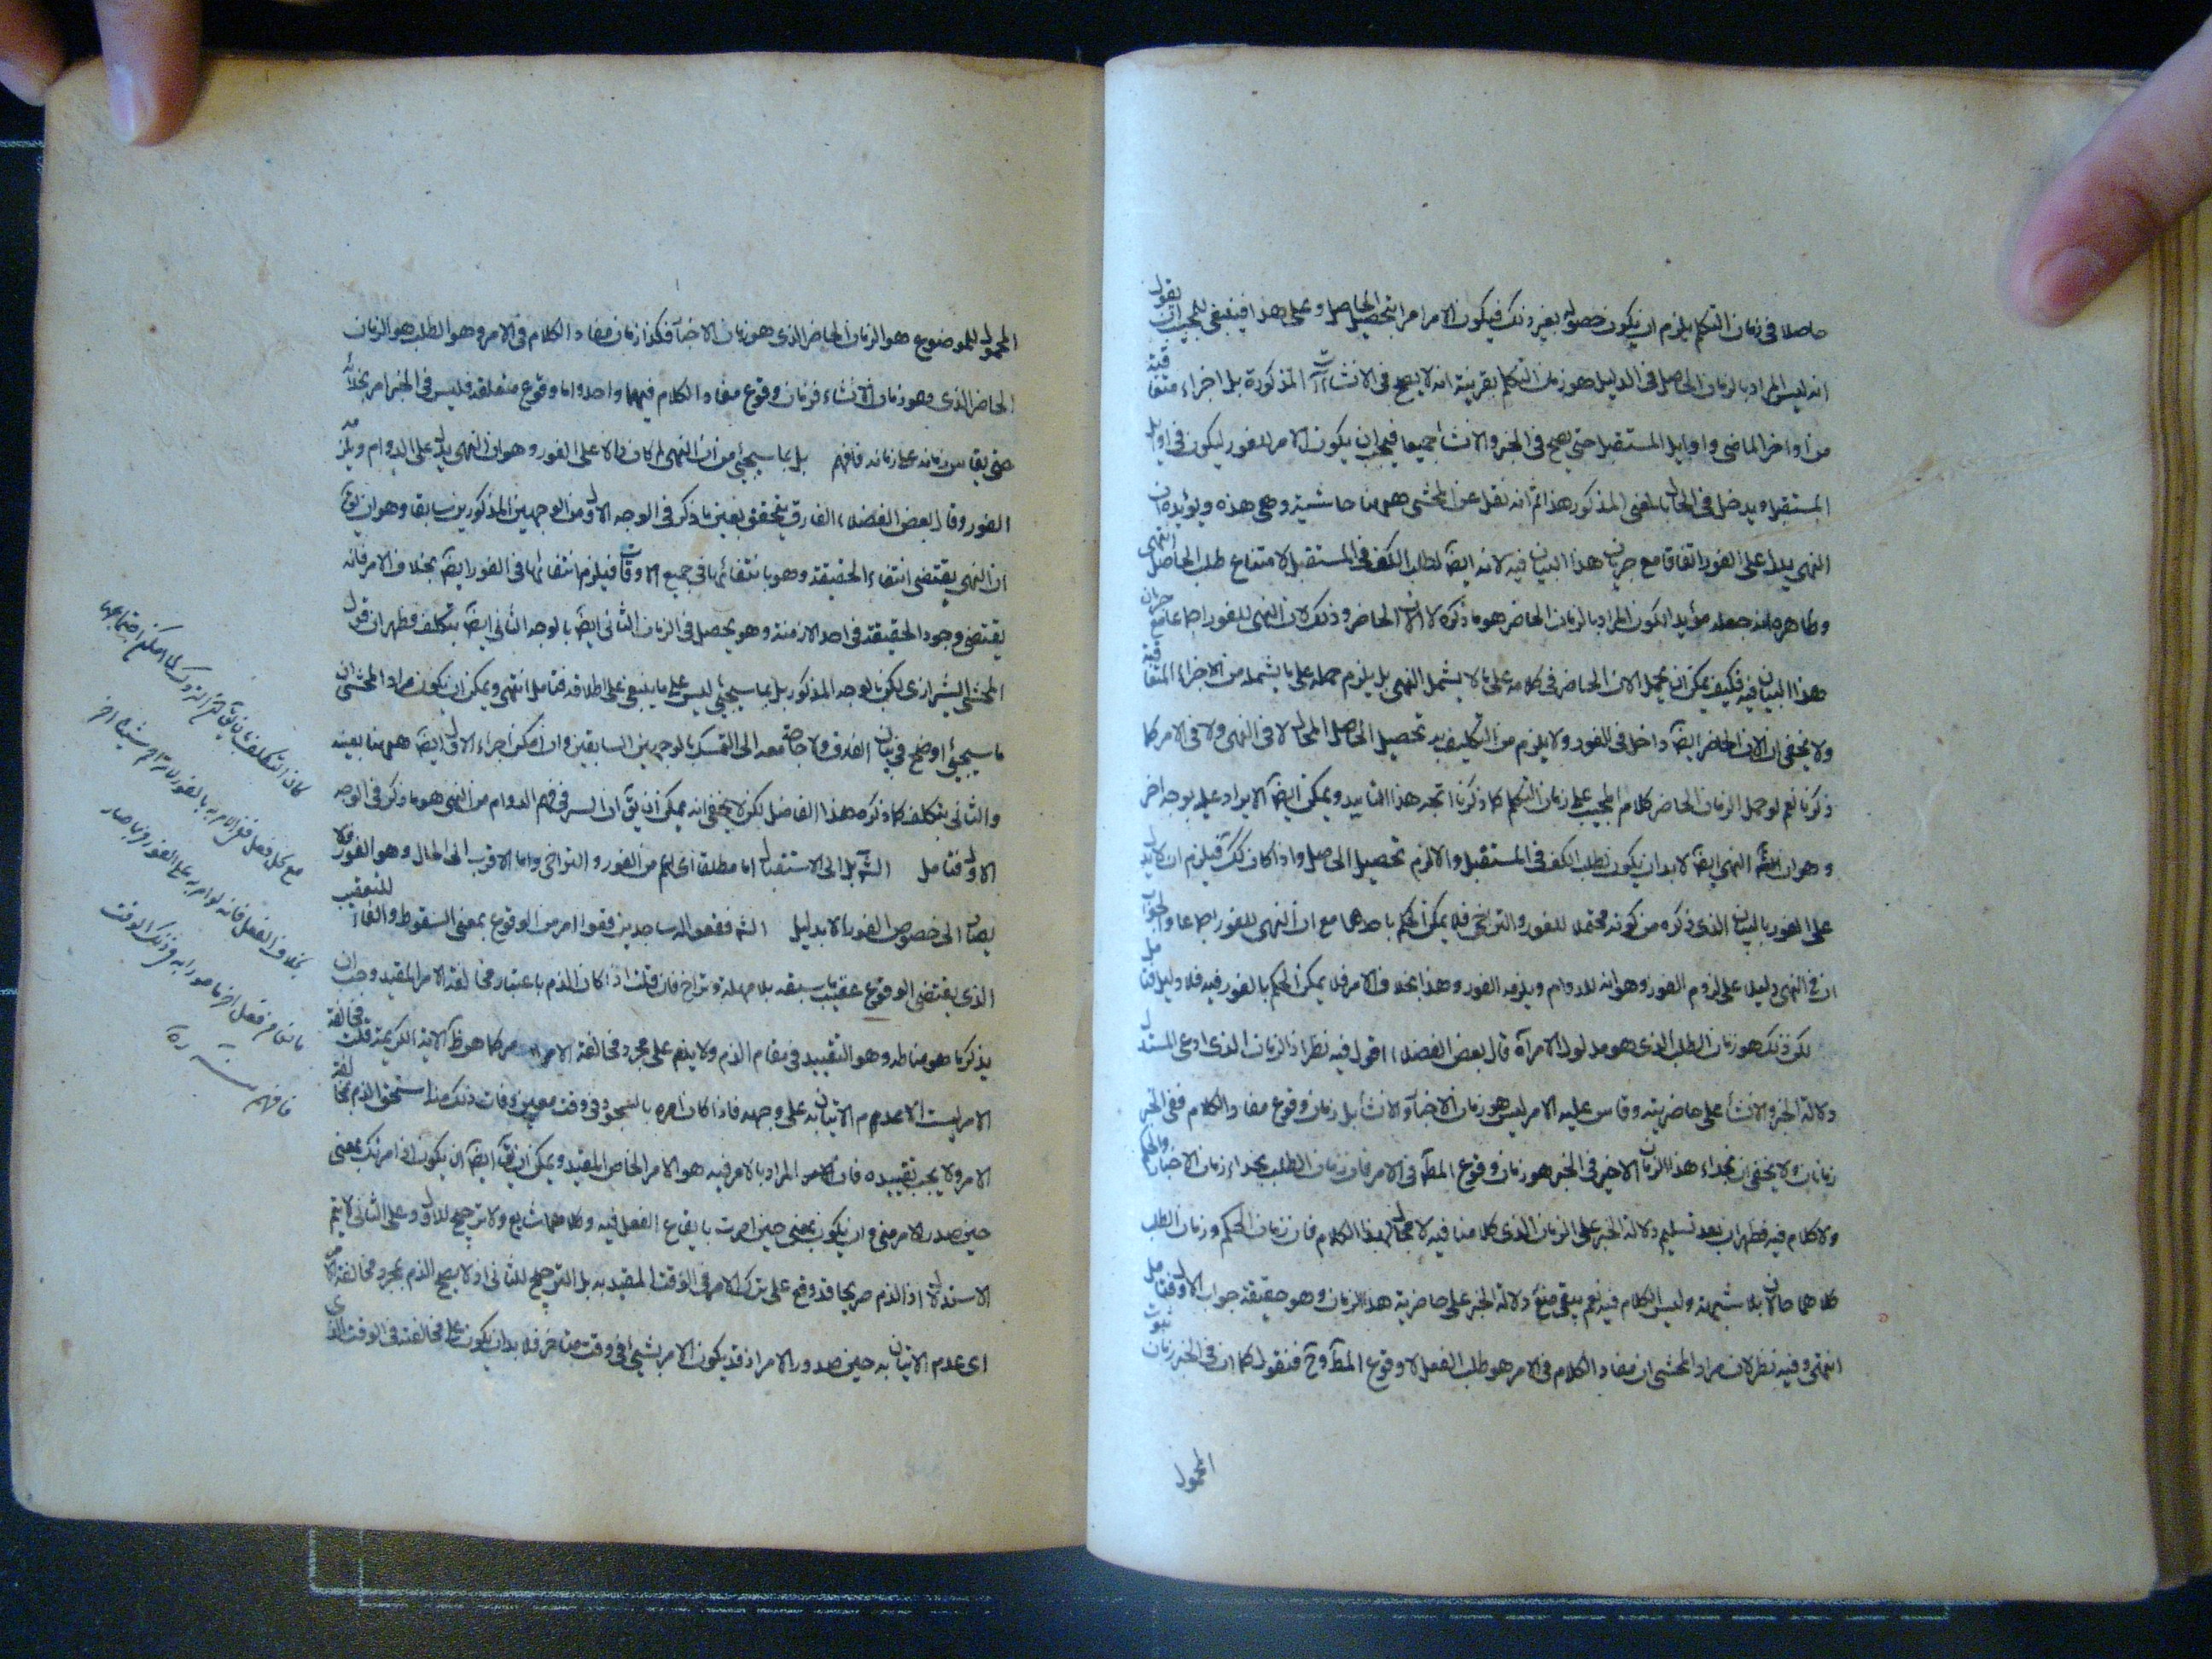 حاصلا في زمان التكلم يلزم ان يكون حصوله بغير ذلك فيكون الامر امرا بتحصيل الحاصل وعلى هذا فينبغي للمجيب ان يقول
انه ليس المراد بالزمان الحاصل في الدليل هو زمان التكلم بقرينة انه لا يصح في الانشاءات المذكورة بل اجزاء متعاقبة
من اواخر الماضي واوايل المستقبل حتى يصح في الخبر والانشا جميعا فيجب ان يكون الامر للفور ليكون في اوايل
المستقبل ويدخل في الحال بالمعنى المذكور هذا ثم انه نقل عن المحشي ههنا حاشية وهي هذه ويؤيده ان
النهي يدل على الفور اتفاقا مع جريان هذا البيان فيه لانه ايضا لطلب الكف في المستقبل لامتناع طلب الحاصل انتهى
وظاهره انه جعله مؤيدا لكون المراد بالزمان الحاضر هو ما ذكره لا الان الحاضر وذلك لان النهي للفور اجماعا مع جريان
هذا البيان فيه فكيف يمكن ان يحمل الان الحاضر في كلامه على ما لا يشمل النهي بل يلزم حمله على ما يشمله من الاجزاء المتعاقبة
ولا يخفى ان الان الحاضر ايضا داخل في الفور ولا يلزم من التكليف به تحصيل الحاصل المحال لا في النهي ولا في الامر كما
ذكرنا نعم لو حمل الزمان الحاضر كلام المجيب على زمان التكلم كما ذكرنا اتجه هذا التاييد ويمكن ايضا الايراد عليه بوجه اخر
وهو ان النهي ايضا لا بد ان يكون لطلب الكف في المستقبل والا لزم تحصيل الحاصل واذا كان كذلك فيلزم ان لا يدل
على الفور بالبيان الذي ذكره من كونه محتملا للفور والتراخي فلا يمكن الحكم باحدهما مع ان النهي للفور اجماعا والجواب
ان في النهي دليلا على لزوم الفور وهو انه للدوام ويلزمه الفور وهذا بخلاف الامر فلا يمكن الحكم بالفور فيه فلا دليل فتامل
لكن ذلك هو زمان الطلب الذي هو مدلول الامر آه قال بعض الفضلاء اقول فيه نظر اذ الزمان الذي ادعى المستدل
دلالة الخبر والانشا على حاضريته وقاس عليه الامر ليس هو زمان الاخبار والانشا بل زمان وقوع مفاد الكلام ففي الخبر
زمانان ولا يخفى ان بحذاء هذا الزمان الاخير في الخبر هو زمان وقوع المط في الامر فان زمان الطلب بحذاء زمان الاخبار والحكم
ولا كلام فيه فظهر ان بعد تسليم دلالة الخبر على الزمان الذي كلامنا فيه لا مجال لهذا الكلام فان زمان الحكم وزمان الطلب
كلاهما حالان بلا شبهة وليس الكلام فيه نعم يبقى منع دلالة الخبر على حاضرية هذا الزمان وهو حقيقة جواب الاول فتامل
انتهى وفيه نظر لان مراد المحشي ان مفاد الكلام في الامر هو طلب الفعل لا وقوع المط وح فنقول كما ان في الخبر زمان ثبوت
المحمول
المحمول للموضوع هو الزمان الحاضر الذي هو زمان الاخبار فكذا زمان مفاد الكلام في الامر وهو الطلب هو الزمان
الحاضر الذي هو زمان الانشاء فزمان وقوع مفاد الكلام فيهما واحد واما وقوع متعلقه فليس في الخبر امر بحذائه
حتى يقاس زمانه على زمانه فافهم بل بما سيجيء من ان النهي لما كان دالا على الفور وهو ان النهي يدل على الدوام ويلزمه
الفور وقال بعض الفضلاء الفارق يتحقق بعين ما ذكر في الوجه الاول من الوجهين المذكورين سابقا وهو ان يق
ان النهي يقتضي انتفاء الحقيقة وهو بانتفائها في جميع الاوقات فيلزم انتفائها في الفور ايضا بخلاف الامر فانه
يقتضي وجود الحقيقة في احد الازمنة وهو يحصل في الزمان الثاني ايضا بالوجه الثاني ايضا بتكلف فظهر ان قول
المحشي الشيرازي لكون بالوجه المذكور بل بما سيجيء ليس على ما ينبغي على اطلاقه فتامل انتهى ويمكن ان يكون مراد المحشي ان
ما سيجيء اوضح في بيان الفرق ولا حاجة معه الى التمسك بالوجهين السابقين وان امكن اجراء الاول ايضا ههنا بعينه
والثاني بتكلف كما ذكره هذا الفاضل لكن لا يخفى انه يمكن ان يق ان السر في فهم الدوام من النهي هو ما ذكر في الوجه
الاول فتامل بل الى الاستقبال اما مطلقا اي اعم من الفور والتراخي واما الاقرب الى الحال وهو الفور فلا
يصار الى خصوص الفور الا بدليل ففقعوا له ساجدين فقعوا امر من الوقوع بمعنى السقوط والفاء للتعقيب
الذي يقتضي الوقوع عقيب ما سبقه بلا مهلة وتراخ فان قلت اذا كان الذم باعتبار مخالفة الامر المقيد وجب ان
يذكر ما هو مناطه وهو التقييد في مقام الذم ولا يذم على مجرد مخالفة الامر كما هو ظ الاية الكريمة قلت مخالفة
الامر ليست الا عدم الاتيان به على وجهه فاذا كان امره بالسجود في وقت معين وفات ذلك منه استحق الذم بمخالفة
الامر ولا يجب تقييده فان المراد بالامر فيه هو الامر الخاص المقيد ويمكن ان يق ايضا ان يكون اذ امرتك بمعنى
حين صدر الامر مني وان يكون بمعنى حين امرت بايقاع الفعل فيه وكلاهما شايع ولا ترجيح للاول وعلى الثاني لا يتم
الاستدلال اذ الذم صريحا قد وقع على ترك الامر في الوقت المقيد به بل الترجيح للثاني اذ لا يصح الذم بمجرد مخالفة الامر
اي عدم الاتيان به حين صدور الامر اذ قد يكون الامر بشيء في وقت متاخر فلا بد ان يكون على مخالفته في الوقت الذي
مع كل فعل
بخلاف الفعل فانه لو امر به على الفور
فافهم منه ره